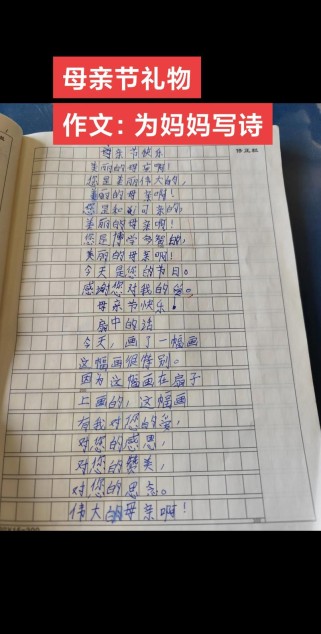 母亲节礼物
作文：为妈妈写诗
母亲节快乐
美丽的母亲啊！
您是美丽伟大的，
美丽的母亲啊！
您是和可亲的，
美丽的母亲啊！
您是博学多智的，
美丽的母亲啊！
今天是您的节日。
感谢您对我的爱。
母亲节快乐！
扇中的话
今天，画了一幅画
这幅画很特别。
因为这幅画在扇子
上画的，这幅画
有我对您的爱，
对您的感恩，
对您的赞美，
对您的思念。
伟大的母亲啊！